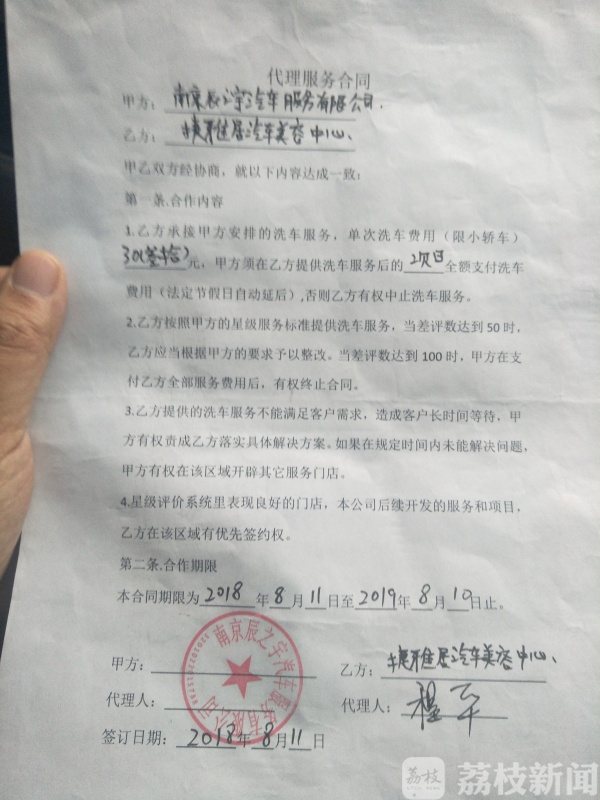 代理服务合同
甲方：南京辰之宇汽车服务有限公司.
乙方：捷雅居汽车美容中心
甲乙双方经协商，就以下内容达成一致：
第一条.合作内容
1.乙方承接甲方安排的洗车服务，单次洗车费用（限小轿车）
30(叁拾)元，甲方须在乙方提供洗车服务后的次日全额支付洗车
费用（法定节假日自动延后）,否则乙方有权中止洗车服务。
2.乙方按照甲方的星级服务标准提供洗车服务，当差评数达到 50 时，
乙方应当根据甲方的要求予以整改。当差评数达到 100 时，甲方在支
付乙方全部服务费用后，有权终止合同。
3.乙方提供的洗车服务不能满足客户需求，造成客户长时间等待，甲
方有权责成乙方落实具体解决方案。如果在规定时间内未能解决问题，
甲方有权在该区域开辟其它服务门店。
4.星级评价系统里表现良好的门店，本公司后续开发的服务和项目，
乙方在该区域有优先签约权。
第二条.合作期限
本合同期限为 2018 年 8 月 11 日至 2019 年 8 月 10 日止。
南京辰之宇汽车服务有限公司
甲方：
乙方：捷雅居汽车美容中心
代理人：
代理人：
签订日期：2018 年 8 月 11 日
荔枝
荔枝新闻